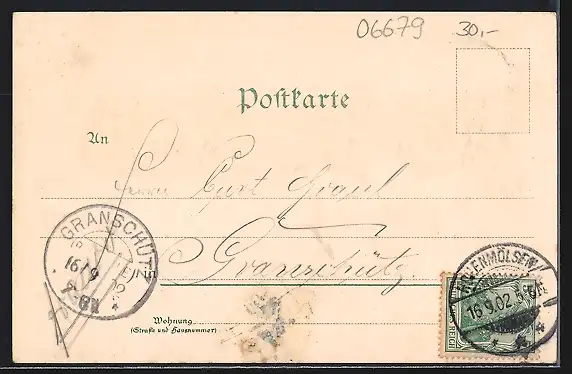 06679 30,-
Postkarte
An
Herrn Curt Graul
GRANSCHÜTZ
16/9
in Granschütz
HOHENMÖLSEN
16.9.02.
Wohnung
(Straße und Hausnummer)
REICH